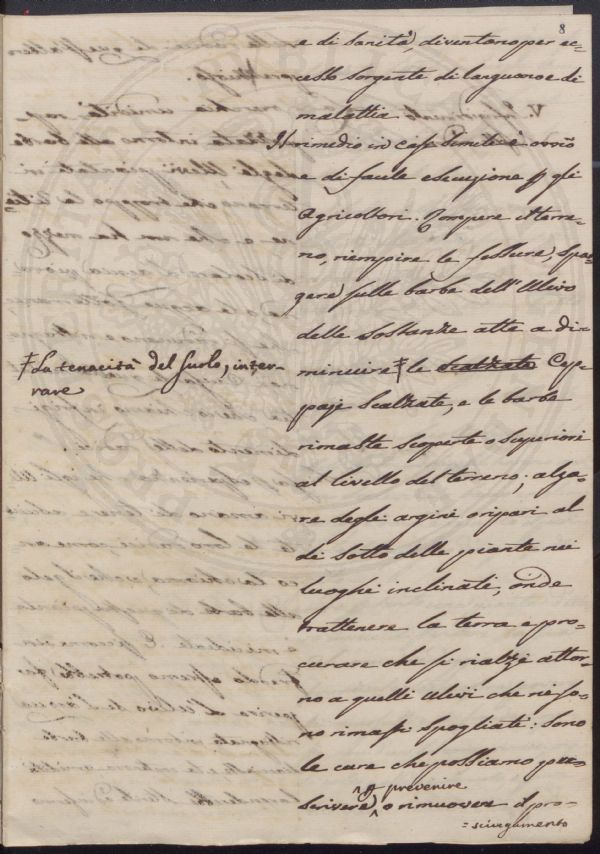 8
e di sanità, diventano per ec=
cesso sorgente di languore e di
malattia.
Il rimedio in casi simili è ovvio
e di facile esecuzione p gli
Agricoltori. Rompere il terre=
no, riempire le fessure, spar=
gere sulle barbe dell'Ulivo
delle sostanze atte a di=
minuire ‡ le scalzate Cep=
paje scalzate, e le barbe
rimaste scoperte o superiori
al livello del terreno; alza=
re degli argini o ripari al
di sotto delle piante nei
luoghi inclinati, onde
trattenere la terra e pro=
curare che si rialzi attor=
no a quelli ulivi che ne so=
no rimasti spogliati: sono
le cure che possiamo pre=
scrivere p prevenire, o rimuovere il pro=
=sciugamento
‡ La tenacità del suolo; inter=
rare